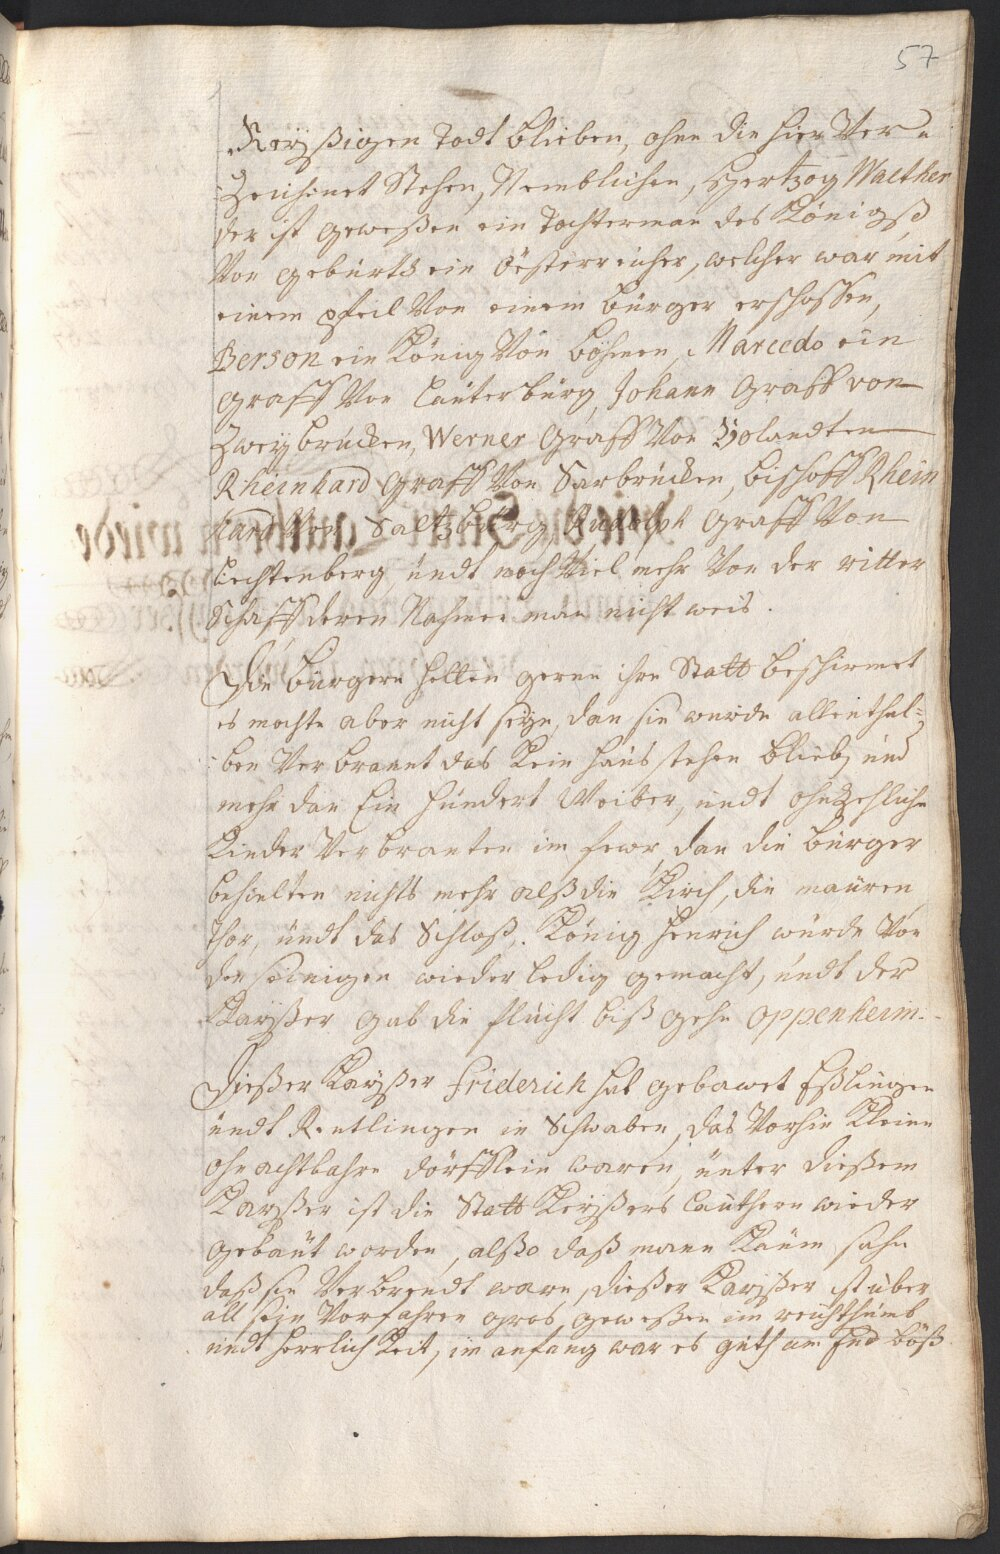 57
Reyßigen Todt blieben, ohne die hier Ver-
Zeichnet Stehen, Nemblichen, Hertzog Walther
der ist geweßen ein Tochterman des Königß
Von gebürth ein Öesterreicher, welcher war mit
einem pfeil Von einem bürger erschossen,
Berson ein König Von böhmen, Marcedo ein
graff Von Lauterbürg, Johann Graff von
Zweybrücken, Werner Graff Von Bolandten
Rheinhard Graff Von Sarbrücken, bischoff Rhein
hard Von Saltzbürg Rudolph Graff Von
Liechtenberg, undt noch Viel mehr Von der ritter
Schafft deren Nahmen man nicht weis.
Die bürgere hetten gerne ihre Statt beschirmet
es mochte aber nicht seyn, dan sie wurde allenthal-
ben Verbrannt das Kein haus stehen blieb, und
mehr dan Ein hundert Weiber, undt ohnzehliche
Kinder Verbranten im fewr, dan die bürger
behielten nichts mehr alß die Kirch, die mauren,
thor, undt das Schloß. König Henrich würde Von
den seinigen wieder ledig gemacht, undt der
Kayßer gab die flucht biß gehn oppenheim.
Dießer Kayßer Friderich hat gebawet Eßlingen
undt Reutlingen in Schwaben, das Vorhin Kleine
ohnachtbahre dörfflein waren, unter dießem
Kayßer ist die Statt Keyßers Lauthern wieder
gebaut worden, alßo daß mann Kaum sahe
daß sie Verbrendt ware, dießer Kayßer ist über
all sein Vorfahren gros geweßen im reichthumb
undt herrlichkeit, im anfang war es guth am End böß